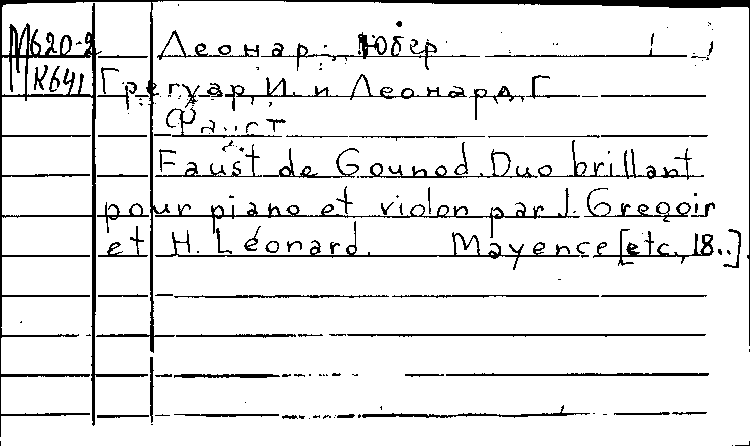 М620-2 Леонар, Юбер
К641 Грегуар, И. и Леонард, Г.
Фауст
Faust de Gounod. Duo brillant
pour piano et violon par J. Gregoir
et H. Léonard. Mayence [etc., 18..].